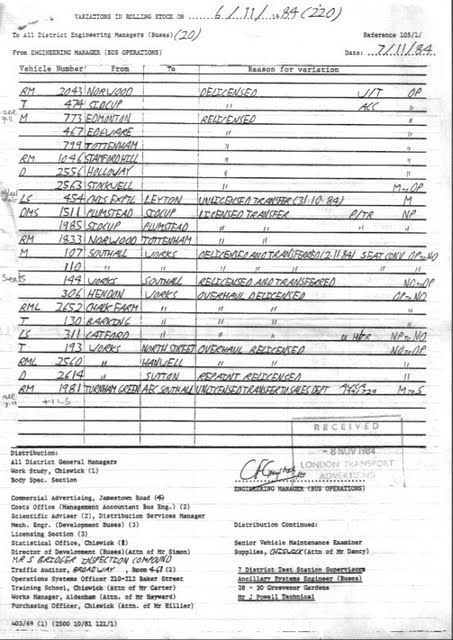 VARIATIONS IN ROLLING STOCK ON 6/11/ 1984 (220)
To All District Engineering Managers (Buses) (20) Reference 105/1/
From ENGINEERING MANAGER (BUS OPERATIONS) Date: 7/11/84
Vehicle Number From To Reason for variation
RM 2043 NORWOOD DELICENSED V/T OP
T 474 SIDCUP " ACC "
M 773 EDMONTON RELICENSED "
467 EDGWARE " "
799 TOTTENHAM " "
RM 1046 STAMFORD HILL " "
D 2556 HOLLOWAY " "
2563 STOCKWELL " M to OP
LS 454 CHIS EXPTL LEYTON UNLICENSED TRANSFER (31.10.84) M
DMS 1511 PLUMSTEAD SIDCUP LICENSED TRANSFER P/TR NP
1985 SIDCUP PLUMSTEAD " " " "
RM 1833 NORWOOD TOTTENHAM " " "
M 107 SOUTHALL WORKS DELICENSED AND TRANSFERRED (2.11.84) SEAT CONV OP to NO
110 " " " " " " "
144 WORKS SOUTHALL RELICENSED AND TRANSFERRED NO to OP
306 HENDON WORKS OVERHAUL DELICENSED OP to NO
RML 2652 CHALK FARM " " " "
130 BARKING " " " "
LS 311 CATFORD " " " NP to NO
T 193 WORKS NORTH STREET OVERHAUL RELICENSED NO to OP
RML 2560 " HANWELL " " "
D 2614 " SUTTON REPAINT RELICENSED "
RM 1981 TURNHAM GREEN AEC SOUTHALL UNLICENSED TRANSFER TO SALES DEPT M to S
RECEIVED
- 8 NOV 1984
LONDON TRANSPORT
ADVERTISING
ENGINEERING MANAGER (BUS OPERATIONS)
Distribution:
All District General Managers
Work Study, Chiswick (1)
Body Spec. Section
Commercial Advertising, Jamestown Road (4)
Costs Office (Management Accountant Bus Eng.) (2)
Scientific Adviser (2), Distribution Services Manager
Mech. Engr. (Development Buses) (3)
Licensing Section (3)
Statistical Office, Chiswick
Director of Development (Buses)(Attn of Mr Simon)
MR S BRIDGER INSPECTION COMPOUND
Traffic Auditor, BROADWAY, Room
Operations Systems Officer 210-212 Baker Street
Training School, Chiswick (Attn of Mr Carter)
Works Manager, Aldenham (Attn. of Mr Hayward)
Purchasing Officer, Chiswick (Attn. of Mr. Hillier)
Distribution Continued:
Senior Vehicle Maintenance Examiner
Supplies, CHISWICK (Attn of Mr Dancy)
7 District Test Station Supervisors
Ancillary Systems Engineer (Buses)
28 - 30 Grosvenor Gardens
Mr J Powell Technical
403/69 (1) (2500 10/81 121/1)